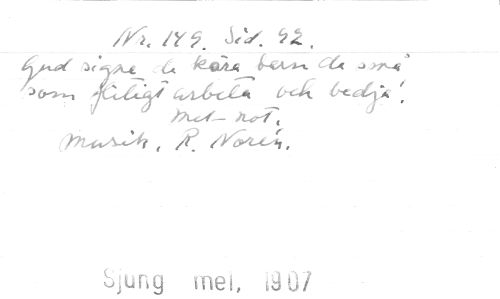 Nr. 149. Sid. 92.
Gud signe de kära barn de små
som flitigt arbeta och bedja!
met not.
Musik, R. Norén.
Sjung mel, 1907